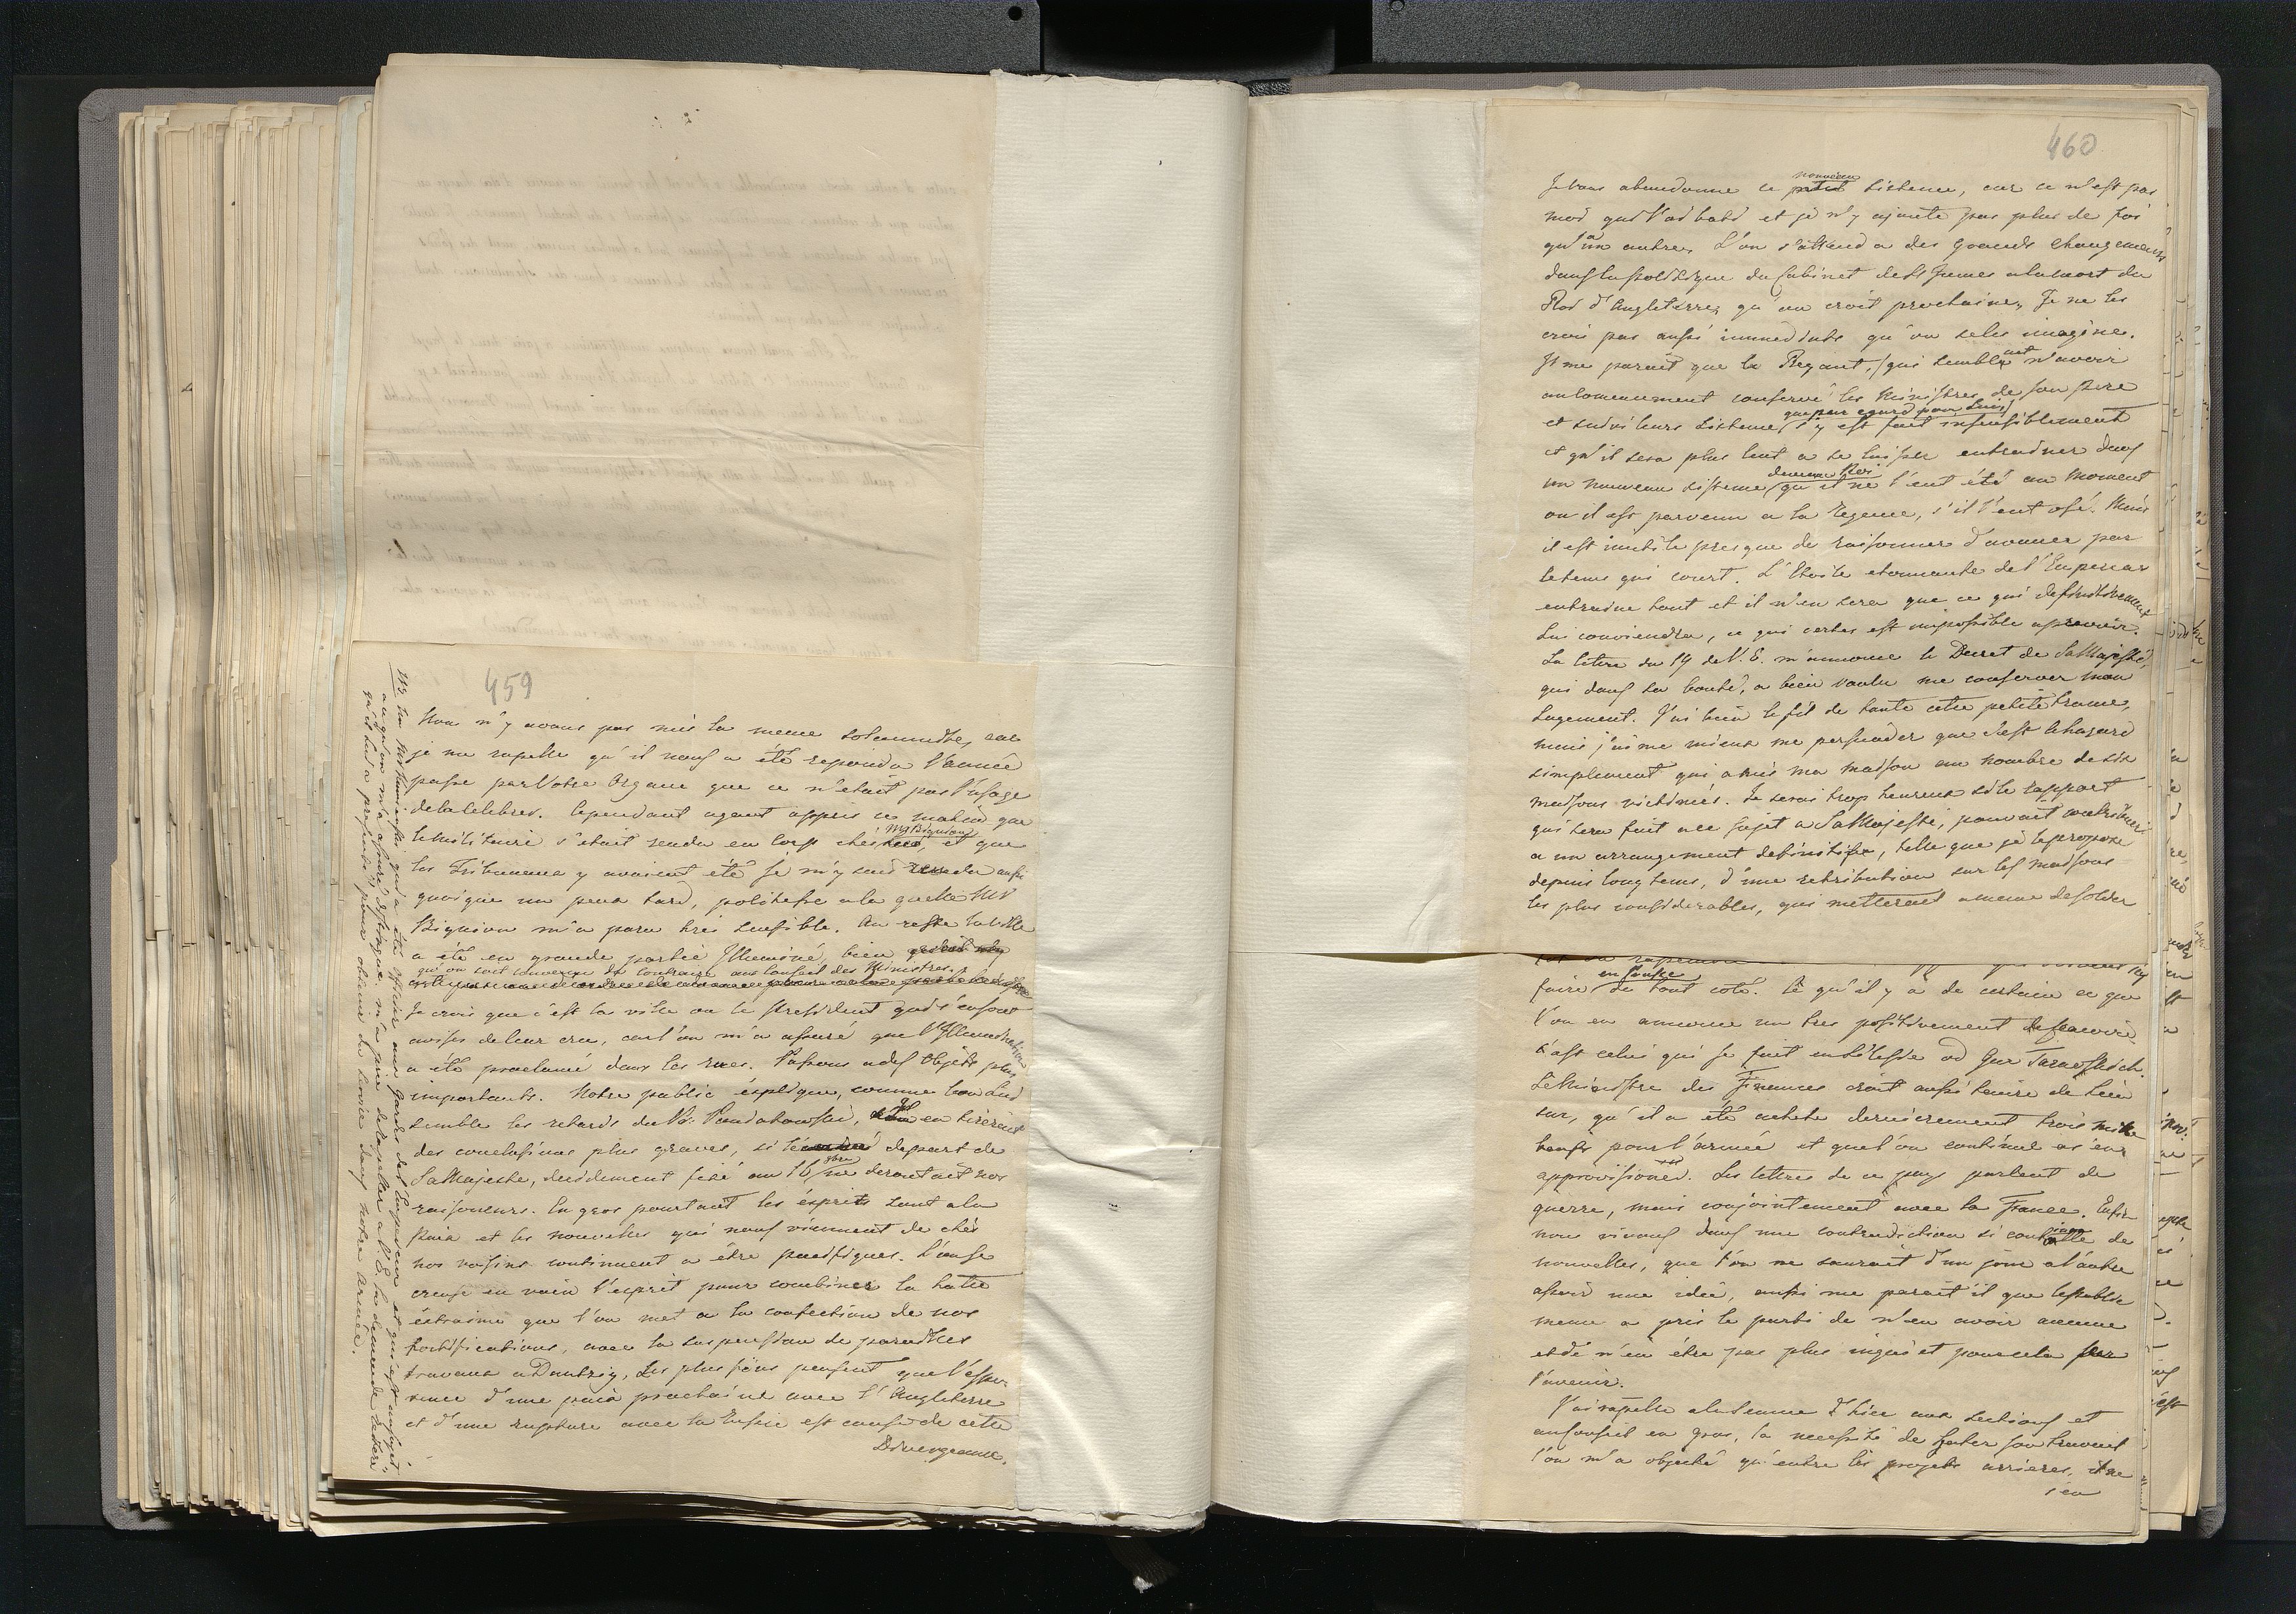 459
Nous n'y avons pas mis la meme solemnité, car
je me rapelle qu'il nous a été repondu l'année
passe par Votre Organe que ce n'etait pas l'usage
de la celebrer. Cependant ayant appris ce matin que
le Militaire s'etait rendu en corp chez Mr Bignon, et que
les Tribunaux y avaient été je m'y suis rendu aussi
quoique un peu tard, politesse a la quelle Mr
Bignion m'a paru très sensible. Au reste la ville
a été en grande partie Illuminé, bien
qu'on soit convenu du contraire au Conseil des Ministres.
Je crois que c'est la ville ou le President qui s'en sont
avisés de leur cru, car l'on m'a assuré que l'Illumination
a été proclamé dans les rues. Passons a des Objets plus
importants. Notre public explique, comme bon lui
semble les retards du Pr Poniatowski, et en tirerait
des conclusions plus graves, si le depart de
Sa Majesté, decidement fixé au 16 9bre ne deroutait nos
raisoneurs. En gros pourtant les ésprits sont a la
paix et les nouvelles qui nous viennent de chés
nos voisins continuent a être pacifiques. L'on se
creuse en vain l'esprit pour combiner la hate
éxtraime que l'on met a la confection de nos
fortifications, avec la suspension de pareilles
travaux a Dantzig, Les plus fins pensent que l'espe-
rence d'une paix prochaine avec l'Angleterre
et d'une rupture avec la Russie est cause de cette
Divergeance.
qui a été officier aux Gardes de l'Empereur et qui est
au qu'on m'a assuré distingué, m'a prié de rapeller a V. E. la demande
qu'il lui a presenté, pour obtenir du service dans notre armée.
460
Je vous abandonne ce nouveau sisteme, car ce n'est pas
moi qui l'ai bati et je n'y ajoute pas plus de foi
qu'a un autre. L'on s'attend a des grands changemens
dans la politique du Cabinet de St James a la mort du
Roi d'Angleterre, qu'on croit prochaine, Je ne les
crois pas aussi immediats qu'on se les imagine.
Il me parait que le Regent, (qui semblait n'avoir
au commencement conservé les Ministres de son pere
et suivi leurs sisteme que par egard pour lui) s'y est fait insensiblement
et qu'il sera plus lent a se laisser entrainer dans
un nouveau sisteme devenu Roi qu'il ne l'eut été au moment
ou il est parvenu a la Regence, s'il l'eut osé. Mais
il est inutile presque de raisonner d'avance par
le tems qui court. L'Etoile etonnante de l'Empereur
entraine tout et il n'en sera que ce qui definitivement
lui conviendra, ce qui certes est impossible a prevoir.
La lettre du 19 de V. E. m'annonce le Decret de Sa Majesté,
qui dans sa bonté, a bien voulu me conserver mon
Logement. J'ai bien le fil de toute cette petite trame,
mais j'aime mieux me persuader que c'est le hazard
simplement qui a mis ma maison au nombre de six
maisons victimés. Je serais trop heureux si le rapport
qui sera fait a ce sujet a Sa Majesté, pouvait contribuer
a un arrangement definitife, telle que je le propose
depuis longtems, d'une retribution sur les maisons
les plus considerables, qui metterait a meme de solder
faire en Russie du tout coté. Ce qu'il y a de certain ce que
l'on en annonce un tres positivement
c'est celui qui se fait
Le Ministre des Finances croit aussi tenir de lieu
sur, qu'il a été acheté dernierement trois mille
beufs pour l'armée et que l'on continue a s'en
approvisioner. Les lettres de ce pays parlent de
guerre, mais conjointement avec la France. Enfin
nous vivons dans une contradiction si continuelle de
nouvelles, que l'on ne saurait d'un jour a l'autre
assoir une idée, aussi me parait il que le public
meme a pris le parti de n'en avoir aucune
et de n'en être pas plus inquiet pour cela sur
l'avenir.
J'ai rapellé a la seance d'hier aux sections et
au conseil en gros, la necessité de hater son travail
l'on m'a objecté qu'entre les projets arrieres, il ne
s'en